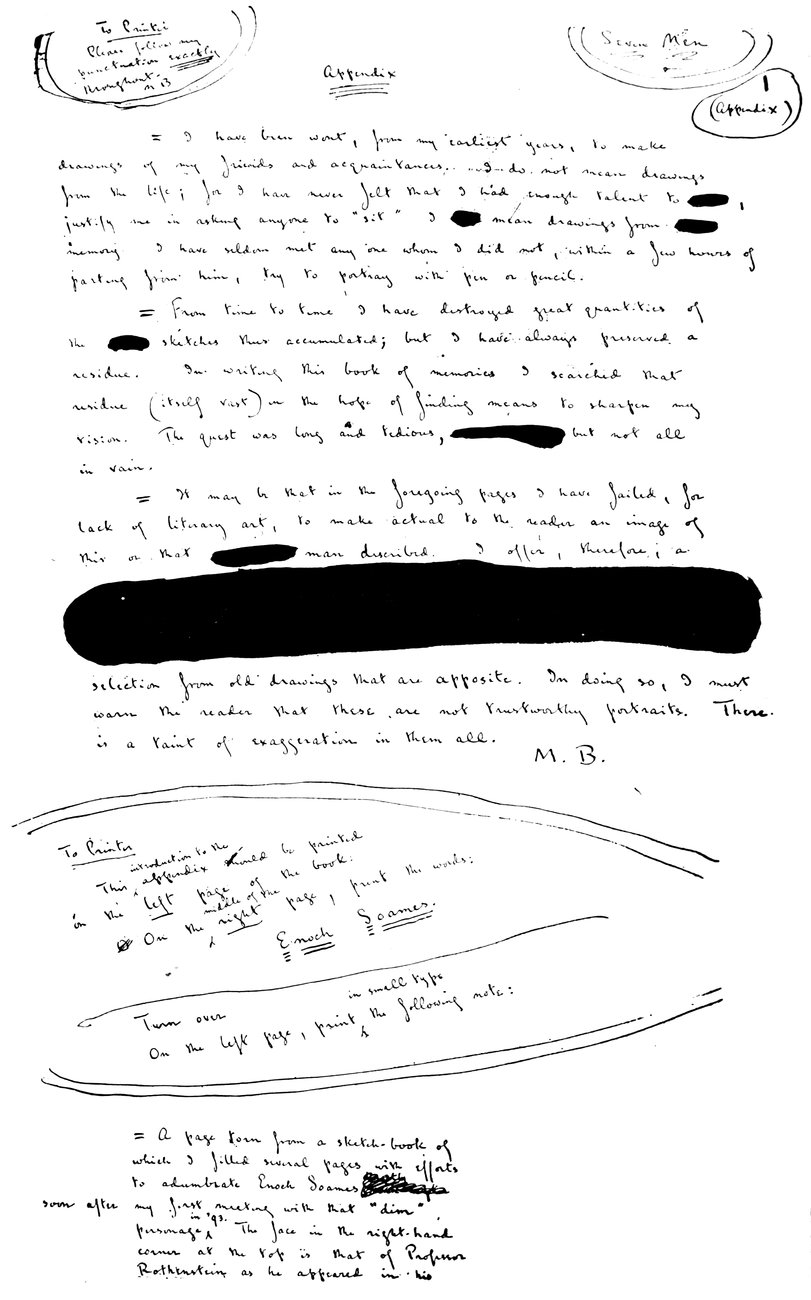 To Printer
Please follow my
punctuation exactly
throughout.
M B
Seven Men
Appendix
1
(Appendix)
= I have been wont, from my earliest years, to make
drawings of my friends and acquaintances. I do not mean drawings
from the life; for I have never felt that I had enough talent to
justify me in asking anyone to "sit" I mean drawings from
memory I have seldom met any one whom I did not, within a few hours of
parting from him, try to portray with pen or pencil.
= From time to time I have destroyed great quantities of
the sketches thus accumulated; but I have always preserved a
residue. In writing this book of memories I searched that
residue (itself vast) in the hope of finding means to sharpen my
vision. The quest was long and tedious, but not all
in vain.
= It may be that in the foregoing pages I have failed, for
lack of literary art, to make actual to the reader an image of
this or that man described. I offer, therefore, a
selection from old drawings that are apposite. In doing so, I must
warn the reader that these are not trustworthy portraits. There
is a taint of exaggeration in them all.
M. B.
To Printer
This introduction to the appendix should be printed
on the left page of the book.
On the middle of the right page, print the words:
Enoch Soames.
Turn over
On the left page, print in small type the following note:
= A page torn from a sketch-book of
which I filled several pages with efforts
to adumbrate Enoch Soames
soon after my first meeting with that "dim"
personage in '93. The face in the right-hand
corner at the top is that of Professor
Rothenstein as he appeared in his